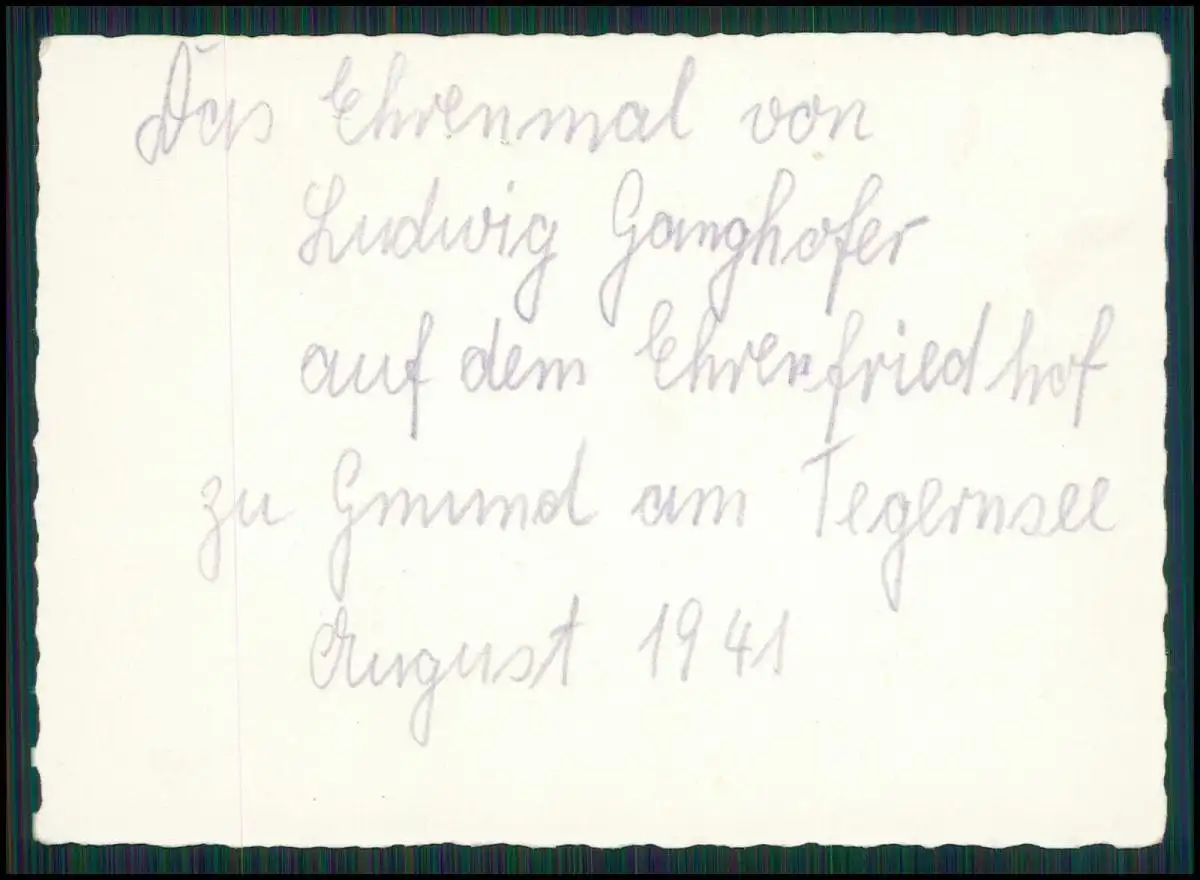 Das Ehrenmal von
Ludwig Ganghofer
auf dem Ehrenfriedhof
zu Gmund am Tegernsee
August 1941